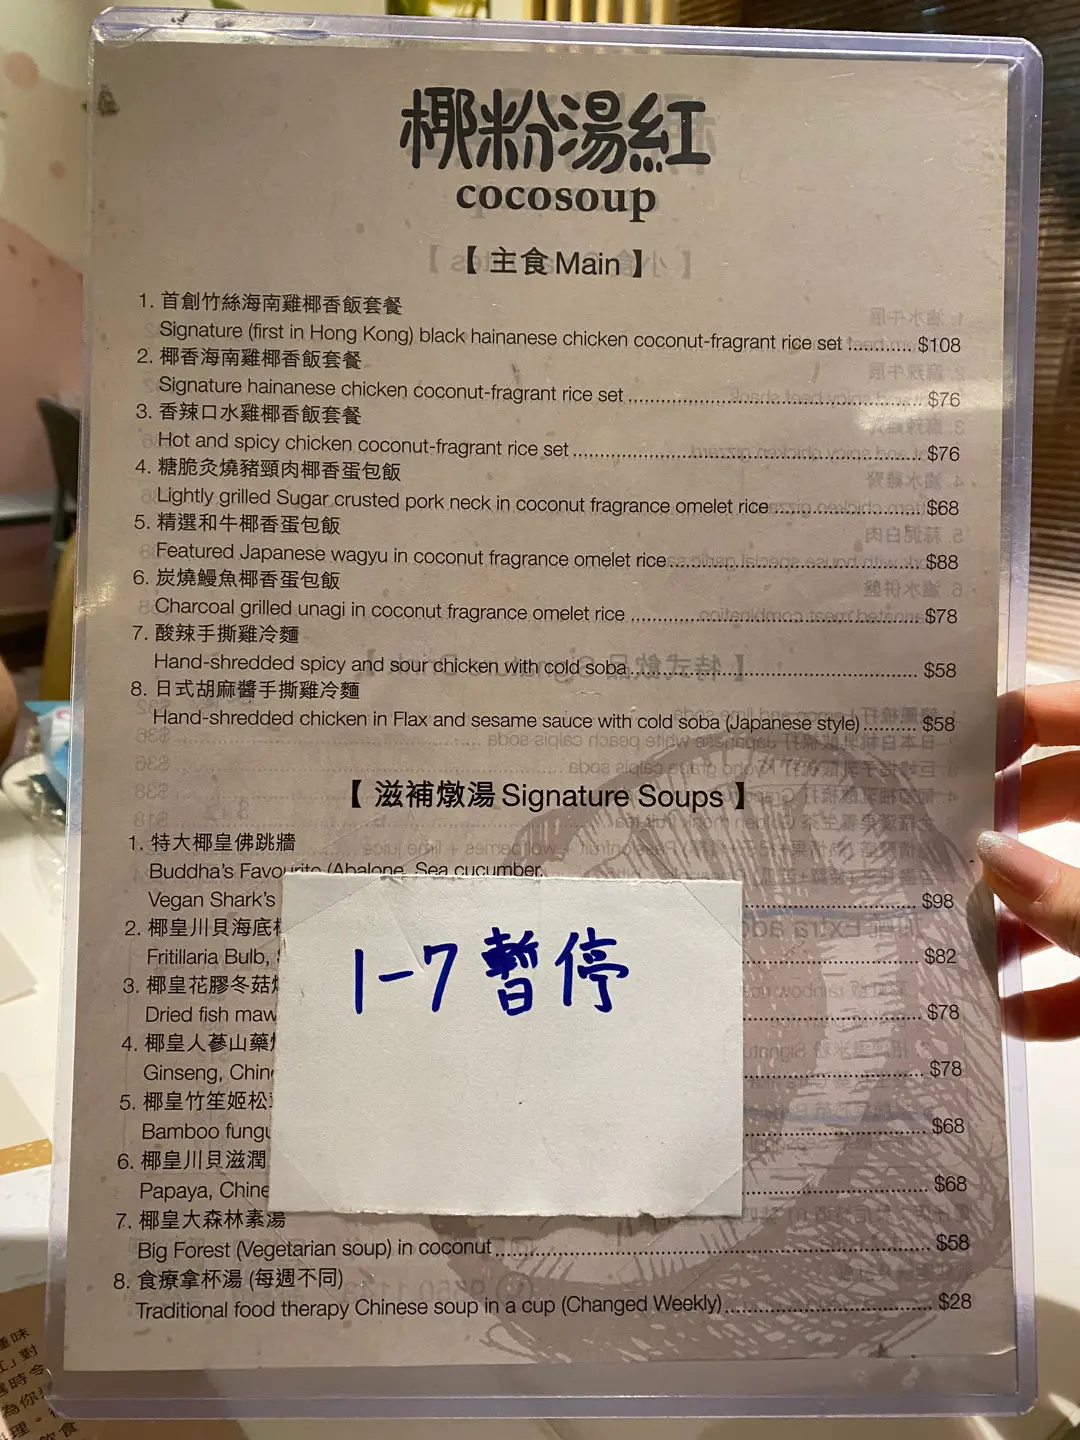 椰粉湯紅
cocosoup
【 主食Main 】
1. 首創竹絲海南雞椰香飯套餐
Signature (first in Hong Kong) black hainanese chicken coconut-fragrant rice set ........... $108
2. 椰香海南雞椰香飯套餐
Signature hainanese chicken coconut-fragrant rice set ........... $76
3. 香辣口水雞椰香飯套餐
Hot and spicy chicken coconut-fragrant rice set ........... $76
4. 糖脆灸燒豬頸肉椰香蛋包飯
Lightly grilled Sugar crusted pork neck in coconut fragrance omelet rice ........... $68
5. 精選和牛椰香蛋包飯
Featured Japanese wagyu in coconut fragrance omelet rice ........... $88
6. 炭燒鰻魚椰香蛋包飯
Charcoal grilled unagi in coconut fragrance omelet rice ........... $78
7. 酸辣手撕雞冷麵
Hand-shredded spicy and sour chicken with cold soba ........... $58
8. 日式胡麻醬手撕雞冷麵
Hand-shredded chicken in Flax and sesame sauce with cold soba (Japanese style) ........... $58
【 滋補燉湯 Signature Soups 】
1. 特大椰皇佛跳牆
Buddha's Favourite (Abalone, Sea cucumber,
Vegan Shark's ........... $98
2. 椰皇川貝海底
Fritillaria Bulb, ........... $82
3. 椰皇花膠冬菇
Dried fish maw ........... $78
4. 椰皇人蔘山藥
Ginseng, ........... $78
5. 椰皇竹笙姬松
Bamboo ........... $68
6. 椰皇川貝滋潤
Papaya, ........... $68
7. 椰皇大森林素湯
Big Forest (Vegetarian soup) in coconut ........... $58
8. 食療拿杯湯 (每週不同)
Traditional food therapy Chinese soup in a cup (Changed Weekly) ........... $28
1-7 暫停